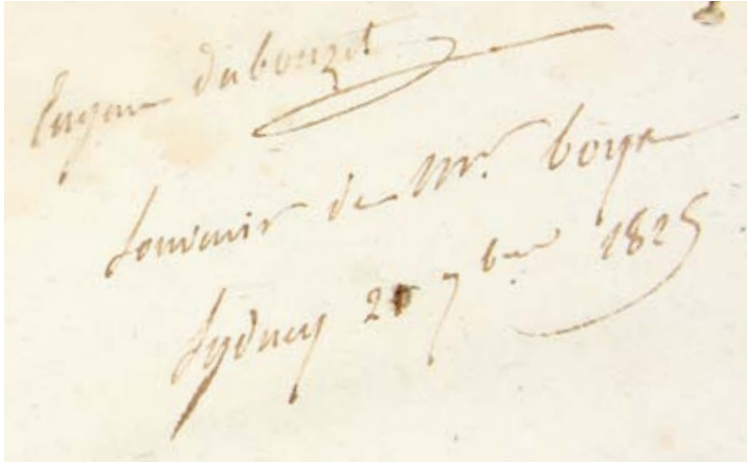 Eugene dubouzet
Souvenir de Mr. boye
Sydney 2 7bre 1825